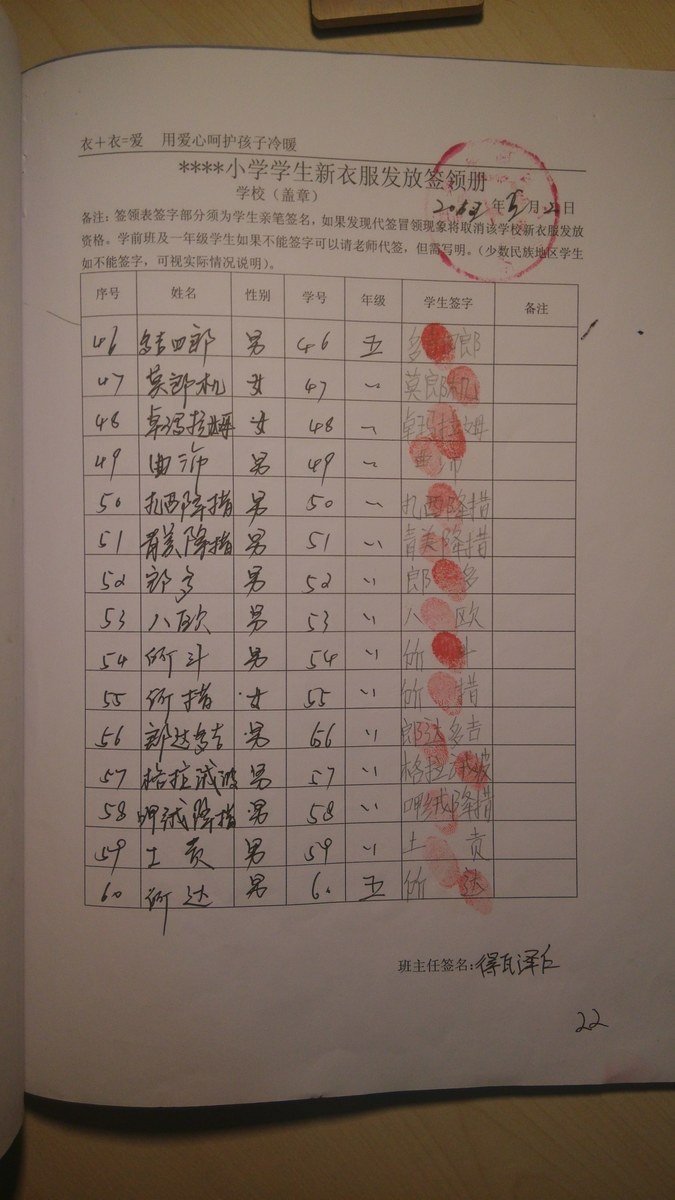 衣+衣=爱 用爱心呵护孩子冷暖
****小学学生新衣服发放签领册
学校（盖章） 年 月 日
备注：签领表签字部分须为学生亲笔签名，如果发现代签冒领现象将取消该学校新衣服发放
资格。学前班及一年级学生如果不能签字可以请老师代签，但需写明。（少数民族地区学生
如不能签字，可视实际情况说明）。
序号 姓名 性别 学号 年级 学生签字 备注
46 多吉四郎 男 46 五 多吉四郎
47 莫郎机 女 47 〃 莫郎机
48 卓玛拉姆 女 48 〃 卓玛拉姆
49 曲沛 男 49 〃 曲沛
50 扎西降措 男 50 〃 扎西降措
51 青美降措 男 51 〃 青美降措
52 郎多 男 52 〃 郎多
53 八欧 男 53 〃 八欧
54 所斗 男 54 〃 所斗
55 所措 女 55 〃 所措
56 郎达多吉 男 56 〃 郎达多吉
57 格拉诚波 男 57 〃 格拉诚
58 呷绒降措 男 58 〃 呷绒降措
59 土贡 男 59 〃 土贡
60 所达 男 60 五 所达
班主任签名：得瓦泽仁
22